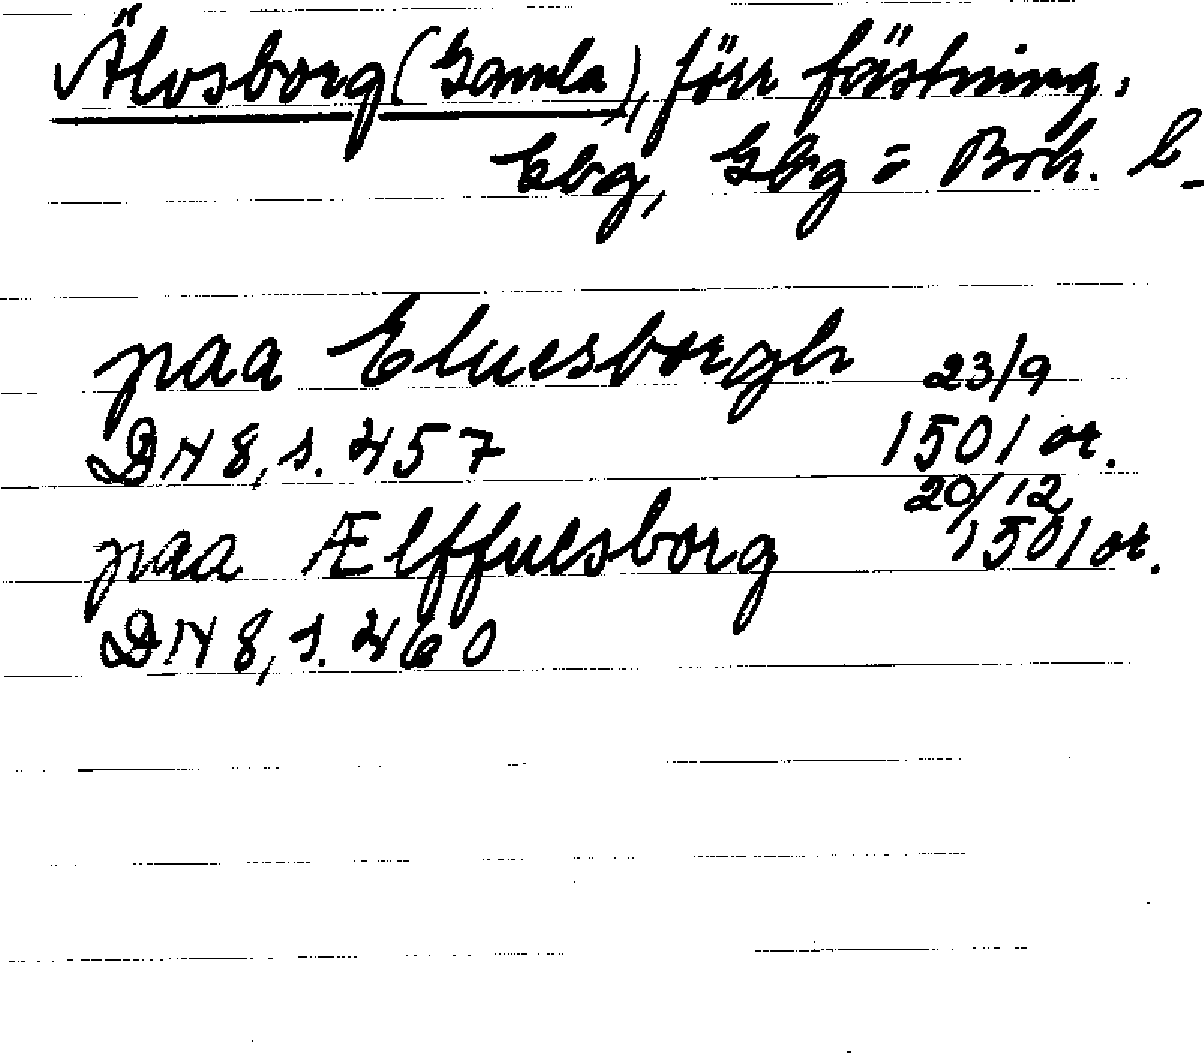 Älvsborg (Gamla), förr fästning.
Gbg, Gbg o Boh. l
paa Eluesborgh 23/9
DN 8, s. 457 1501 or.
paa Ælffuesborg 20/12 1501 or.
DN 8, s. 460